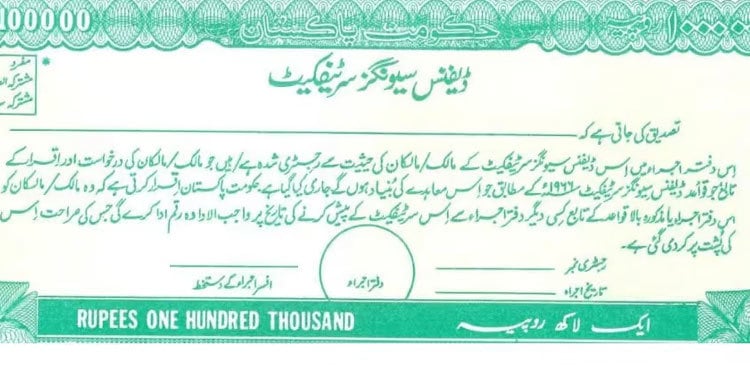 100000 حکومت پاکستان ۱۰۰۰۰۰ روپیہ
*
منفرد
مشترکہ
مشترکہ
ڈیفنس سیونگز سرٹیفکیٹ
تصدیق کی جاتی ہے کہ
اس دفتر اجراء میں اِس ڈیفنس سیونگز سرٹیفکیٹ کے مالک/مالکان کی حیثیت سے رجسٹری شدہ ہے/ہیں جو مالک/مالکان کی درخواست اور اقرار کے
تابع جو قواعد ڈیفنس سیونگز سرٹیفکیٹ ۱۹۶۶ء کے مطابق جو اس معاہدے کی بُنیاد ہوں گے جاری کیا گیا ہے۔ حکومت پاکستان اقرار کرتی ہے کہ وہ مالک/مالکان کو
اس دفتر اجراء یا مذکورہ بالا قواعد کے تابع کسی دیگر دفتر اجراء سے اس سرٹیفکیٹ کے پیش کرنے کی تاریخ پر واجب الادا وہ رقم ادا کرے گی جس کی صراحت اِس
کی پُشت پر کر دی گئی ہے۔
رجسٹری نمبر
تاریخ اجراء
دفتر اجراء
افسر اجراء کے دستخط
RUPEES ONE HUNDRED THOUSAND ایک لاکھ روپیہ